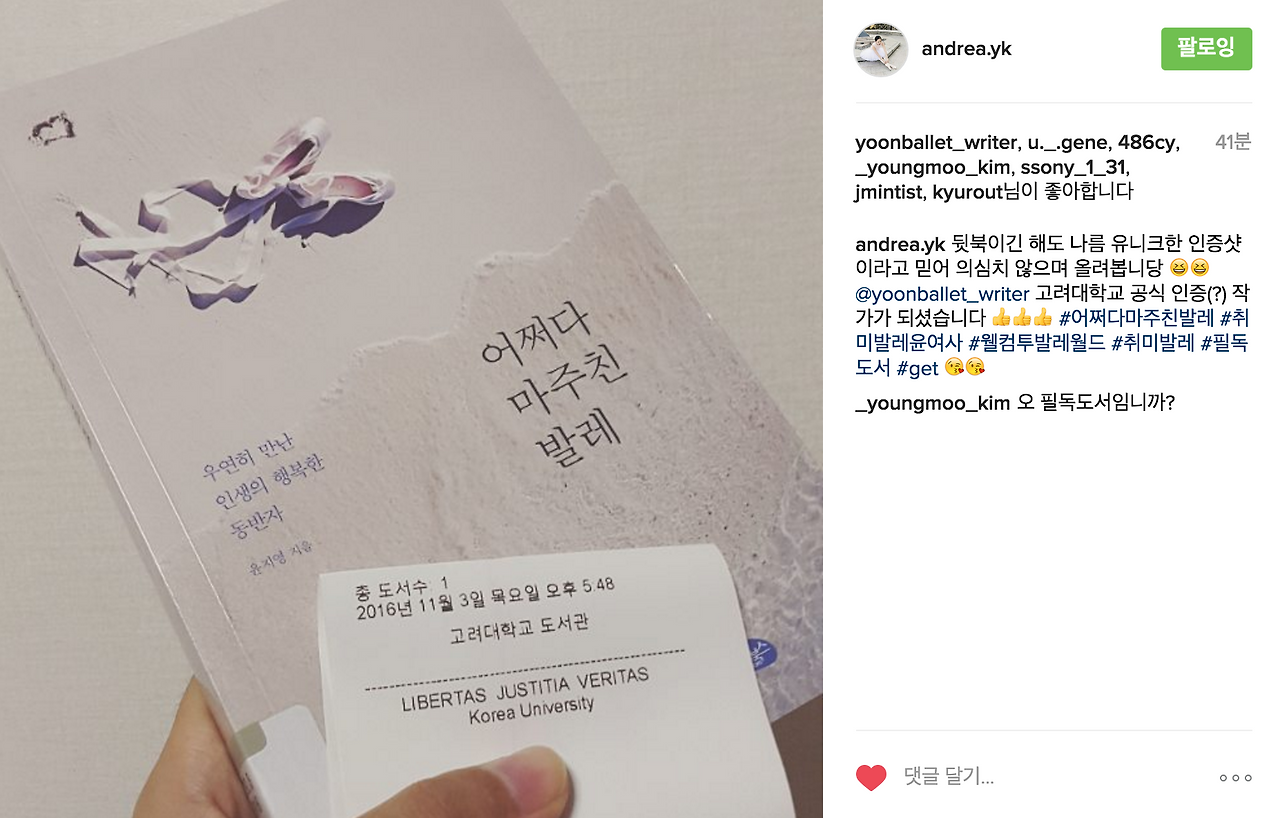 어쩌다
마주친
발레
우연히 만난
인생의 행복한
동반자
윤지영 지음
총 도서수: 1
2016년 11월 3일 목요일 오후 5:48
고려대학교 도서관
LIBERTAS JUSTITIA VERITAS
Korea University
andrea.yk
팔로잉
yoonballet_writer, u._.gene, 486cy,
41분
_youngmoo_kim, ssony_1_31,
jmintist, kyurout님이 좋아합니다
andrea.yk 뒷북이긴 해도 나름 유니크한 인증샷
이라고 믿어 의심치 않으며 올려봅니당 😆😆
@yoonballet_writer 고려대학교 공식 인증(?) 작
가가 되셨습니다 👍👍👍 #어쩌다마주친발레 #취
미발레윤여사 #웰컴투발레월드 #취미발레 #필독
도서 #get 😘😘
_youngmoo_kim 오 필독도서임니까?
댓글 달기...